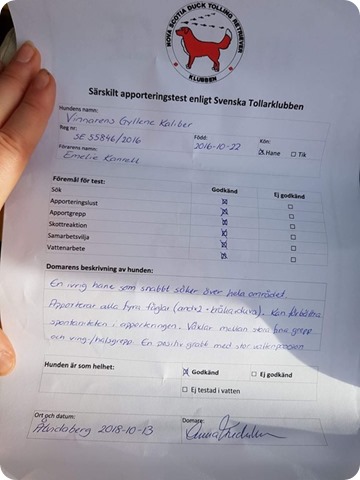 NOVA SCOTIA DUCK TOLLING RETRIEVER
KLUBBEN
Särskilt apporteringstest enligt Svenska Tollarklubben
Hundens namn:
Vinnarens Gyllene Kaliber
Reg nr: Född: Kön:
SE 55846/2016 2016-10-22 Hane Tik
Förarens namn:
Emelie
Föremål för test: Godkänd Ej godkänd
Sök
Apporteringslust
Apportgrepp
Skottreaktion
Samarbetsvilja
Vattenarbete
Domarens beskrivning av hunden:
En ivrig hane som snabbt söker över hela området.
Apporterar alla fyra fåglar
spontaniteten i apporteringen. Växlar mellan stora fina grepp
och ving/halsgrepp. En positiv grabb med stor
Hunden är som helhet: Godkänd Ej godkänd
Ej testad i vatten
Ort och datum: Domare:
2018-10-13